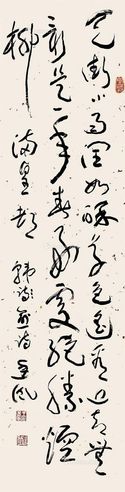 天街小雨潤如酥草色遙看近卻無
最是一年春好處絕勝煙
柳滿皇都